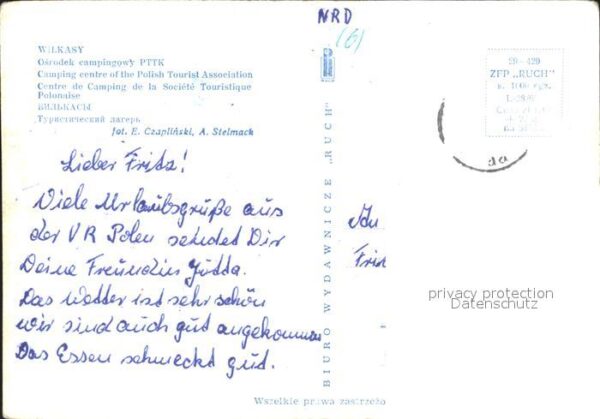 NRD
(6)
WILKASY
Ośrodek campingowy PTTK
Camping centre of the Polish Tourist Association
Centre de Camping de la Société Touristique
Polonaise
ВИЛЬКАСЫ
Туристический лагерь
fot. E. Czapliński, A. Stelmach
Lieber Fritz!
Viele Urlaubsgrüße aus
der VR Polen sendet Dir
Deine Freundin Jutta.
Das Wetter ist sehr schön
wir sind auch gut angekommen
Das Essen schmeckt gut.
BIURO WYDAWNICZE „RUCH"
59-420
ZFP „RUCH"
do
An
Frit
privacy protection
Datenschutz
Wszelkie prawa zastrzeżo